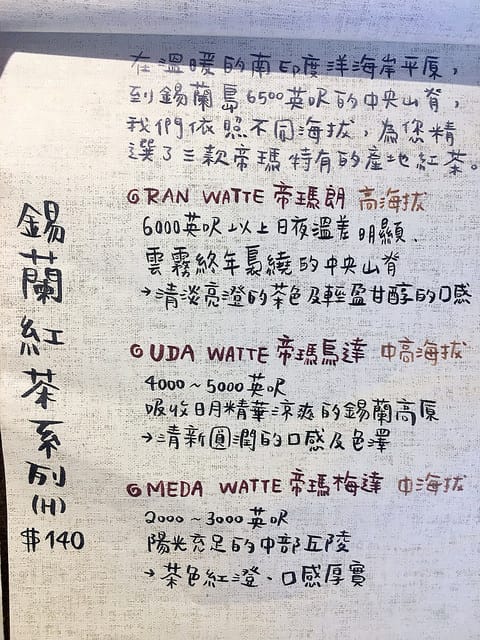 在溫暖的南印度洋海岸平原，
到錫蘭島6500英呎的中央山脊，
我們依照不同海拔，為您精
選了三款帝瑪特有的產地紅茶。
RAN WATTE 帝瑪朗 高海拔
6000英呎以上日夜溫差明顯、
雲霧終年裊繞的中央山脊
→清淡亮澄的茶色及輕盈甘醇的口感
UDA WATTE 帝瑪烏達 中高海拔
4000~5000英呎
吸收日月精華涼爽的錫蘭高原
→清新圓潤的口感及色澤
MEDA WATTE 帝瑪梅達 中海拔
2000~3000英呎
陽光充足的中部丘陵
→茶色紅澄、口感厚實
錫蘭紅茶系列
(H)
$140